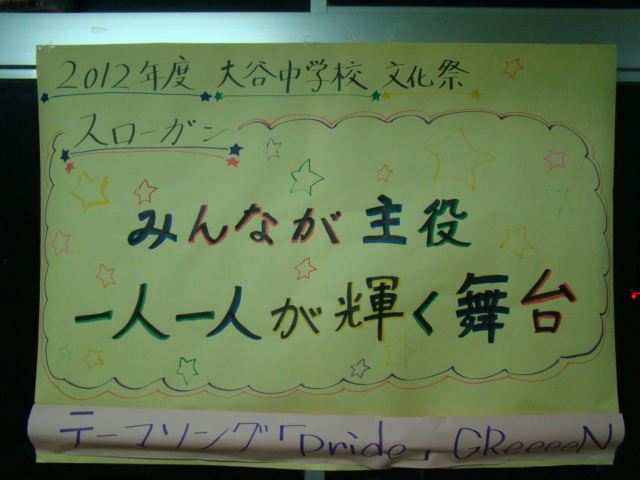 2012年度 大谷中学校 文化祭
スローガン
みんなが主役
一人一人が輝く舞台
テーマソング「pride」 GReeeeN